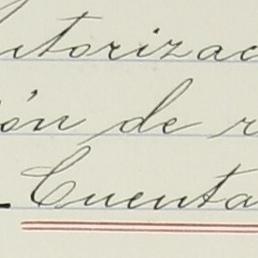 utorizac
ón de r
Cuenta